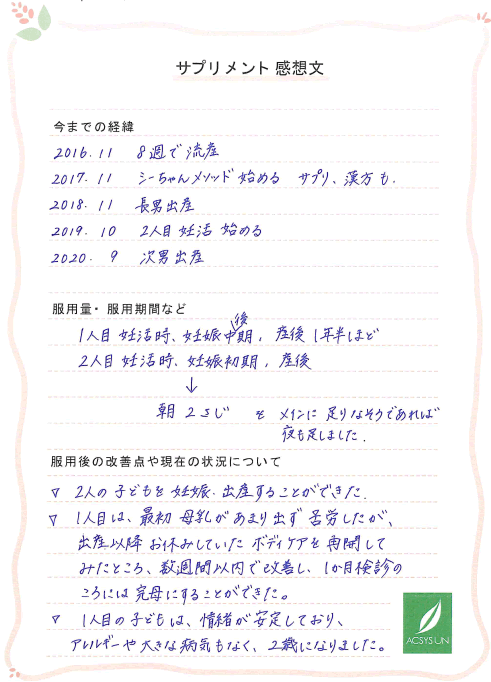 サプリメント 感想文
今までの経緯
2016.11 8週で流産
2017.11 シーちゃんメソッド始める サプリ、漢方も.
2018.11 長男出産
2019.10 2人目妊活始める
2020.9 次男出産
服用量・服用期間など
後
1人目妊活時、妊娠中期, 産後1年半ほど
2人目妊活時、妊娠初期, 産後
↓
朝 2さじ を メインに 足りなそうであれば
夜も足しました.
服用後の改善点や現在の状況について
▽ 2人の子どもを妊娠.出産することができた.
▽ 1人目は、最初母乳があまり出ず苦労したが、
出産以降お休みしていたボディケアを再開して
みたところ、数週間以内で改善し、1か月検診の
ころには完母にすることができた。
▽ 1人目の子どもは、情緒が安定しており、
アレルギーや大きな病気もなく、2歳になりました。
ACSYS UN